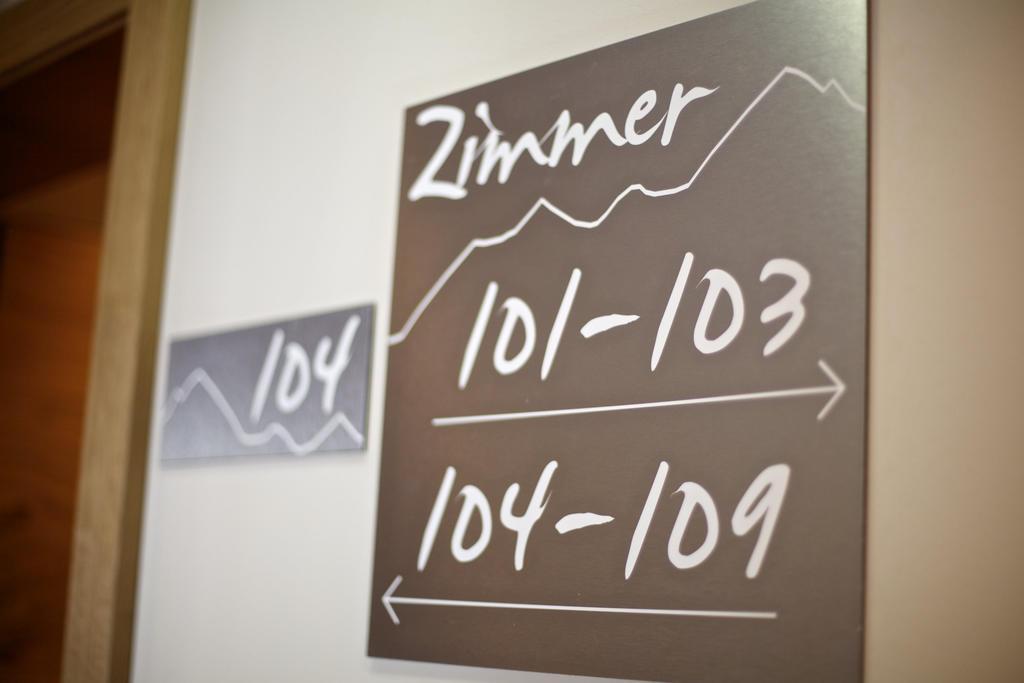 Zimmer
101-103
104-109
104